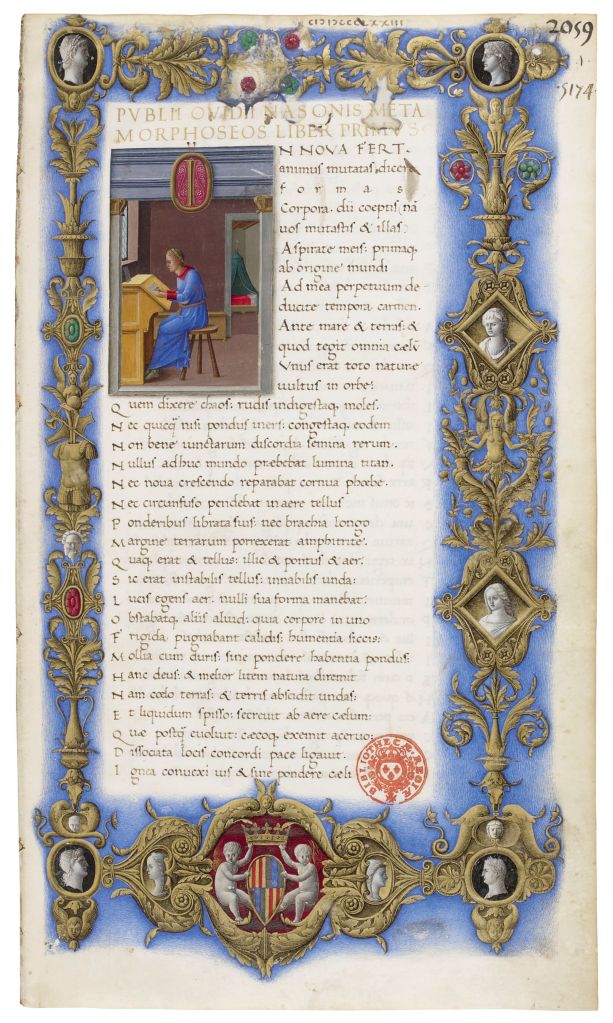 2059
.1.
5174.
PVBLII OVIDII NASONIS META
MORPHOSEOS LIBER PRIMVS
I
N NOVA FERT.
animus mutatas dicere
formas
Corpora. dii coeptis nã
uos mutastis & illas
Aspirate meis: primaq.
ab origine mundi
Ad mea perpetuum de-
ducite tempora carmen.
Ante mare & terras: &
quod tegit omnia cælũ
Vnus erat toto nature
uultus in orbe:
Quem dixere chaos: rudis indigestaq. moles.
Nec quicq̃ nisi pondus iners: congestaq. eodem
Non bene iunctarum discordia semina rerum.
Nullus adhuc mundo præbebat lumina titan.
Nec noua crescendo reparabat cornua phoebe.
Nec circunfuso pendebat in aere tellus
Ponderibus librata suis: nec brachia longo
Margine terrarum porrexerat amphitrite.
Quaq. erat & tellus: illic & pontus & aer.
Sic erat instabilis tellus: innabilis unda:
Lucis egens aer. nulli sua forma manebat.
Obstabatq. aliis aliud: quia corpore in uno
Frigida pugnabant calidis: humentia siccis:
Mollia cum duris: sine pondere habentia pondus:
Hanc deus: & melior litem natura diremit
Nam coelo terras: & terris abscidit undas:
Et liquidum spisso: secreuit ab aere cælum:
Quæ postq̃ euoluit: cæcoq. exemit aceruo:
Dissociata locis concordi pace ligauit.
Ignea conuexi uis & sine pondere cæli
BIBLIOTHECÆ REGIÆ